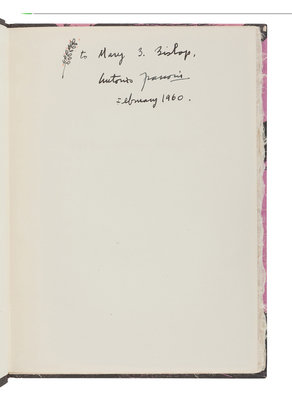 to Mary S. Bishop,
Antonio Frasconi
February 1960.